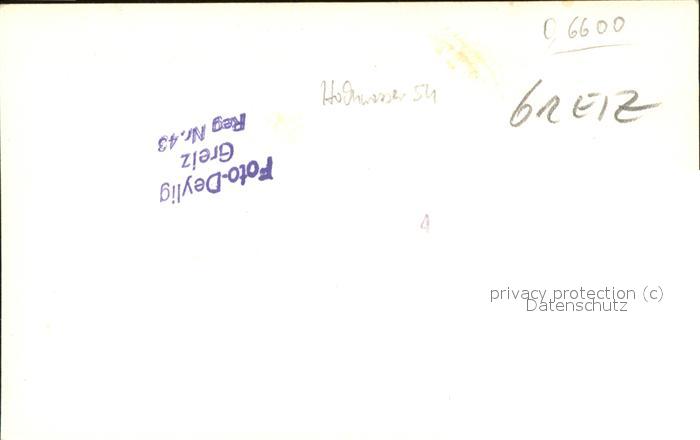 O 6600
Hochwasser 54
GREIZ
Foto-Deylig
Greiz
Reg Nr. 43
4
privacy protection (c)
Datenschutz